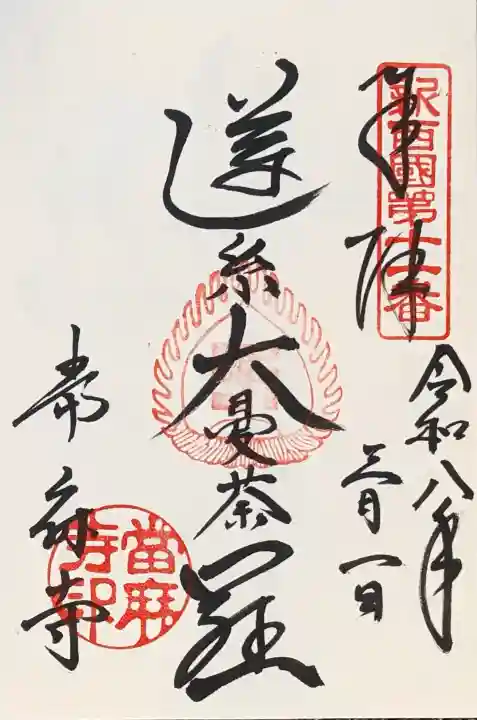 新西國第十一番
奉拝
令和八年
三月一日
蓮糸大曼荼羅
當麻寺
當麻
寺印